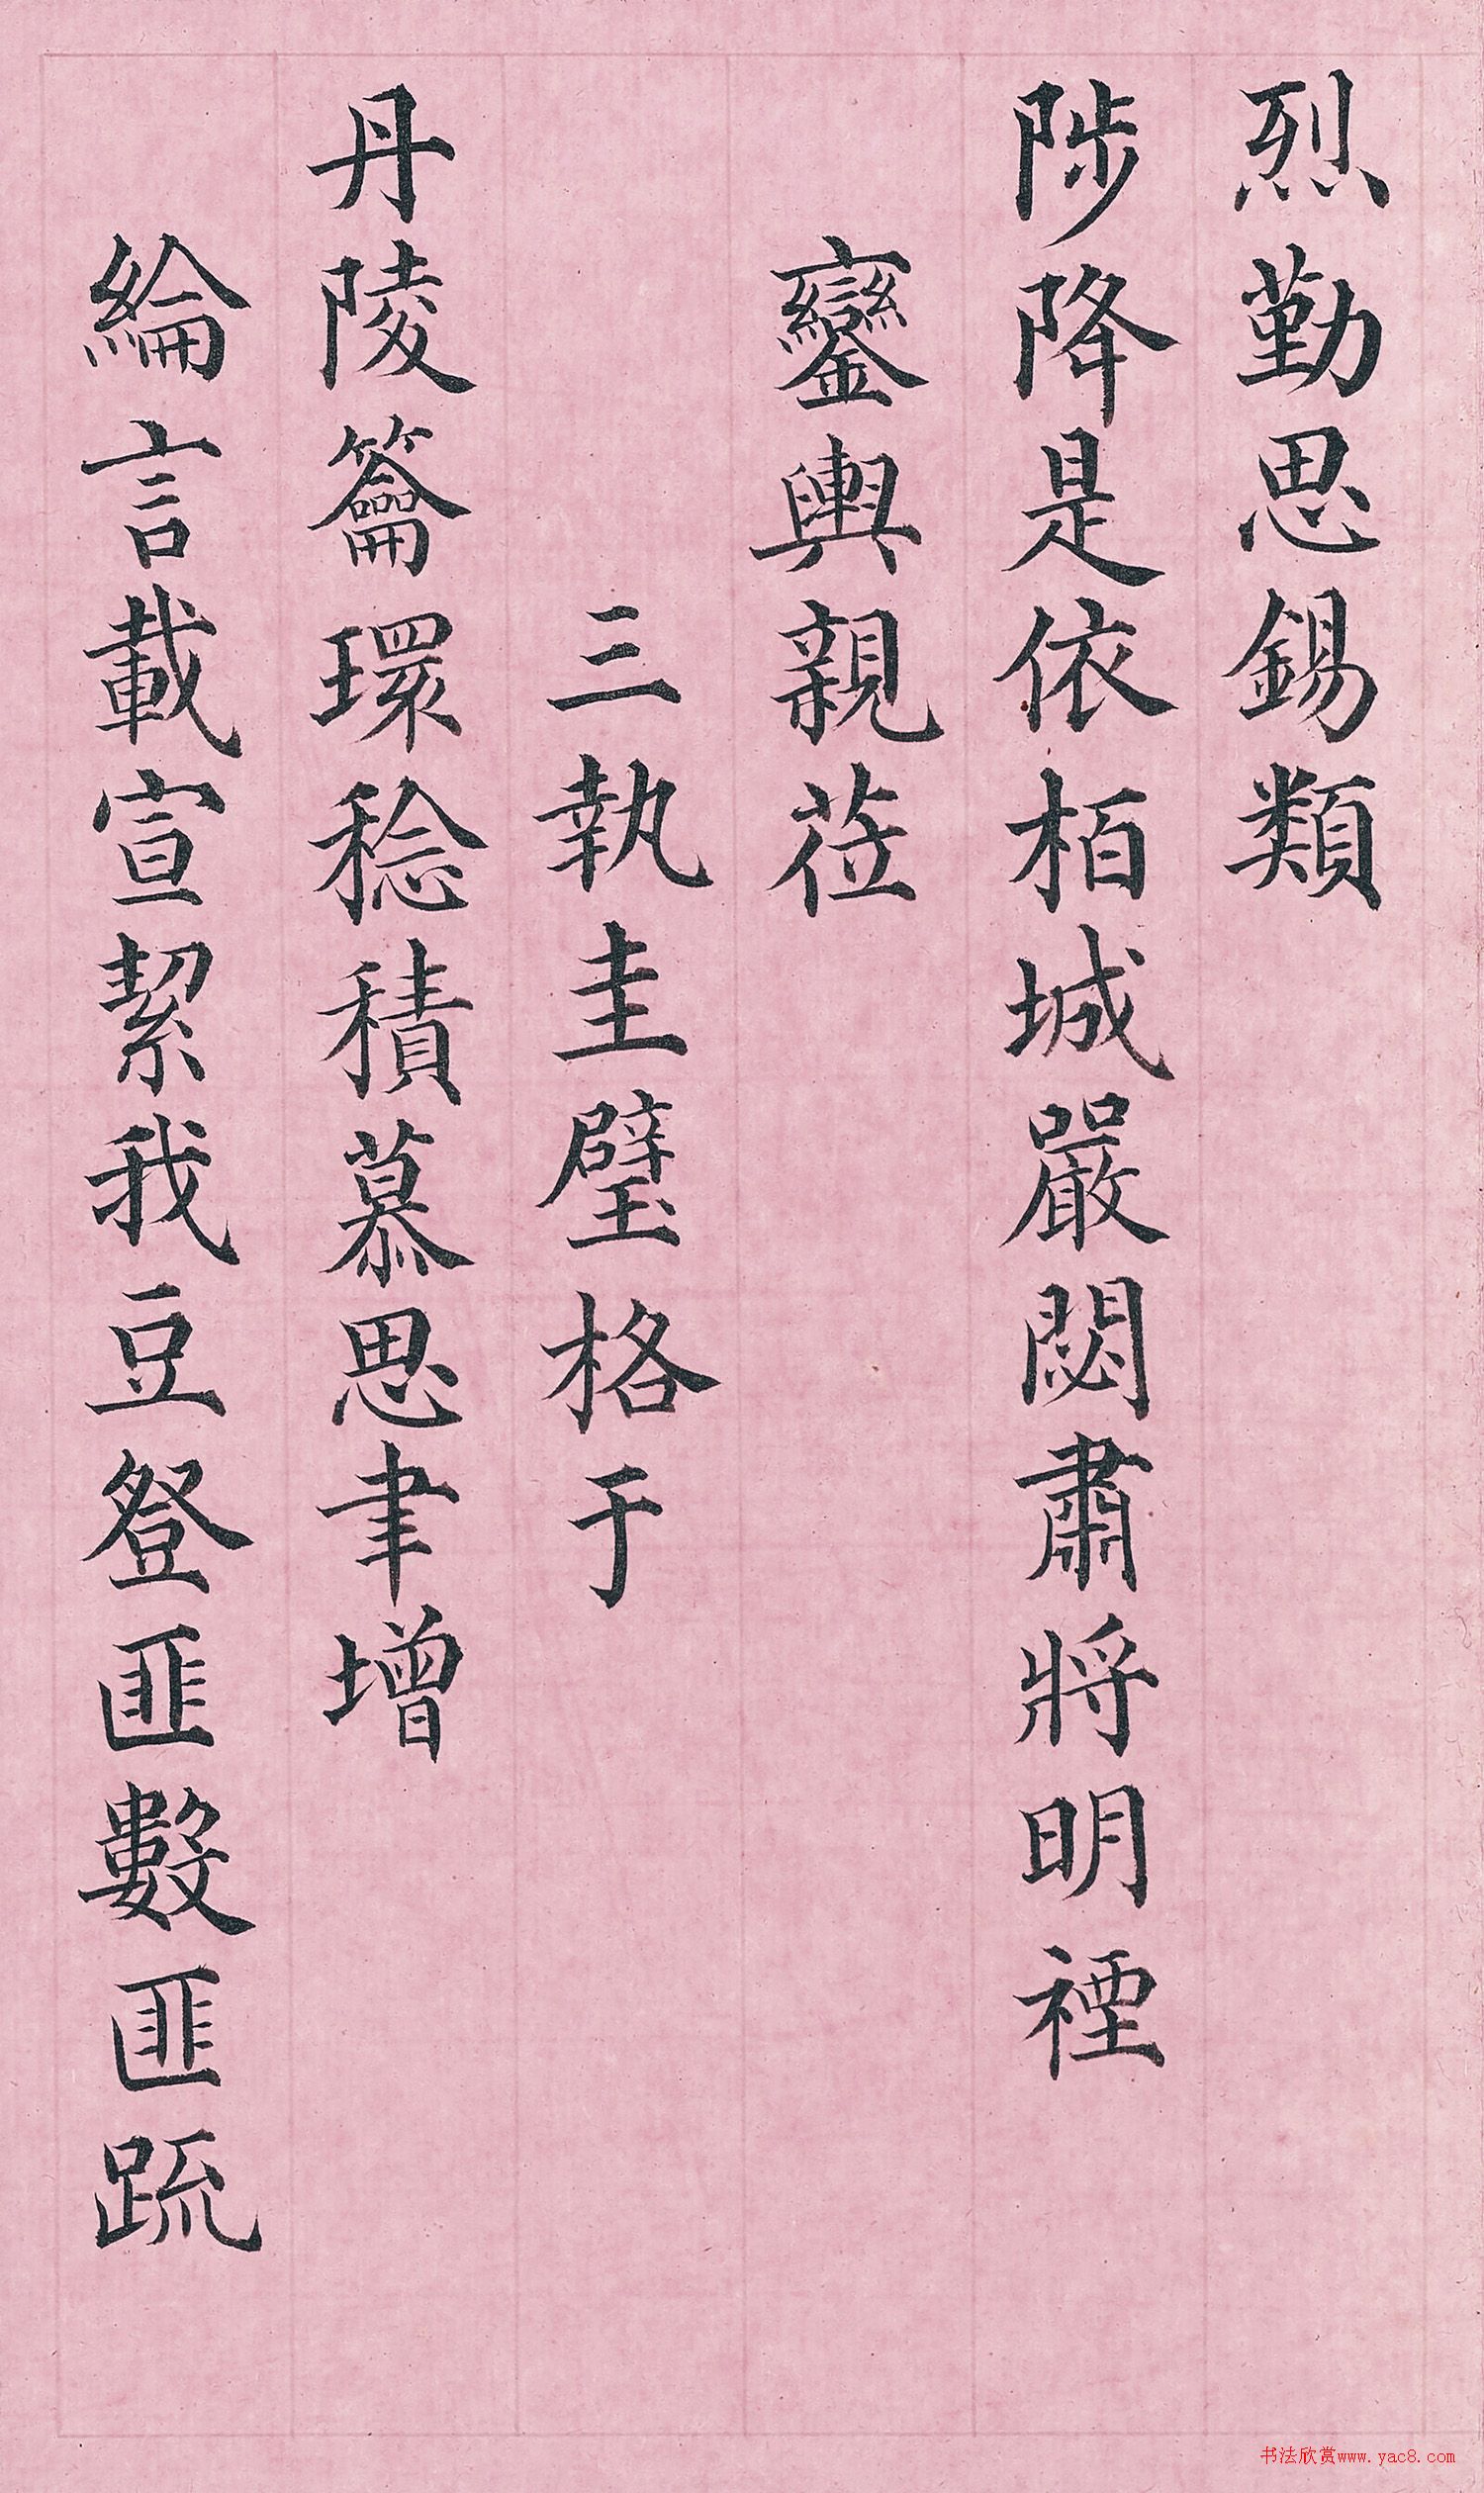 烈勤思錫類
陟降是依栢城嚴閟肅將明禋
鑾輿親莅
三執圭璧格于
丹陵籥環稔積慕思聿增
綸言載宣絜我豆豋匪數匪疏
书法欣赏www.yac8.com